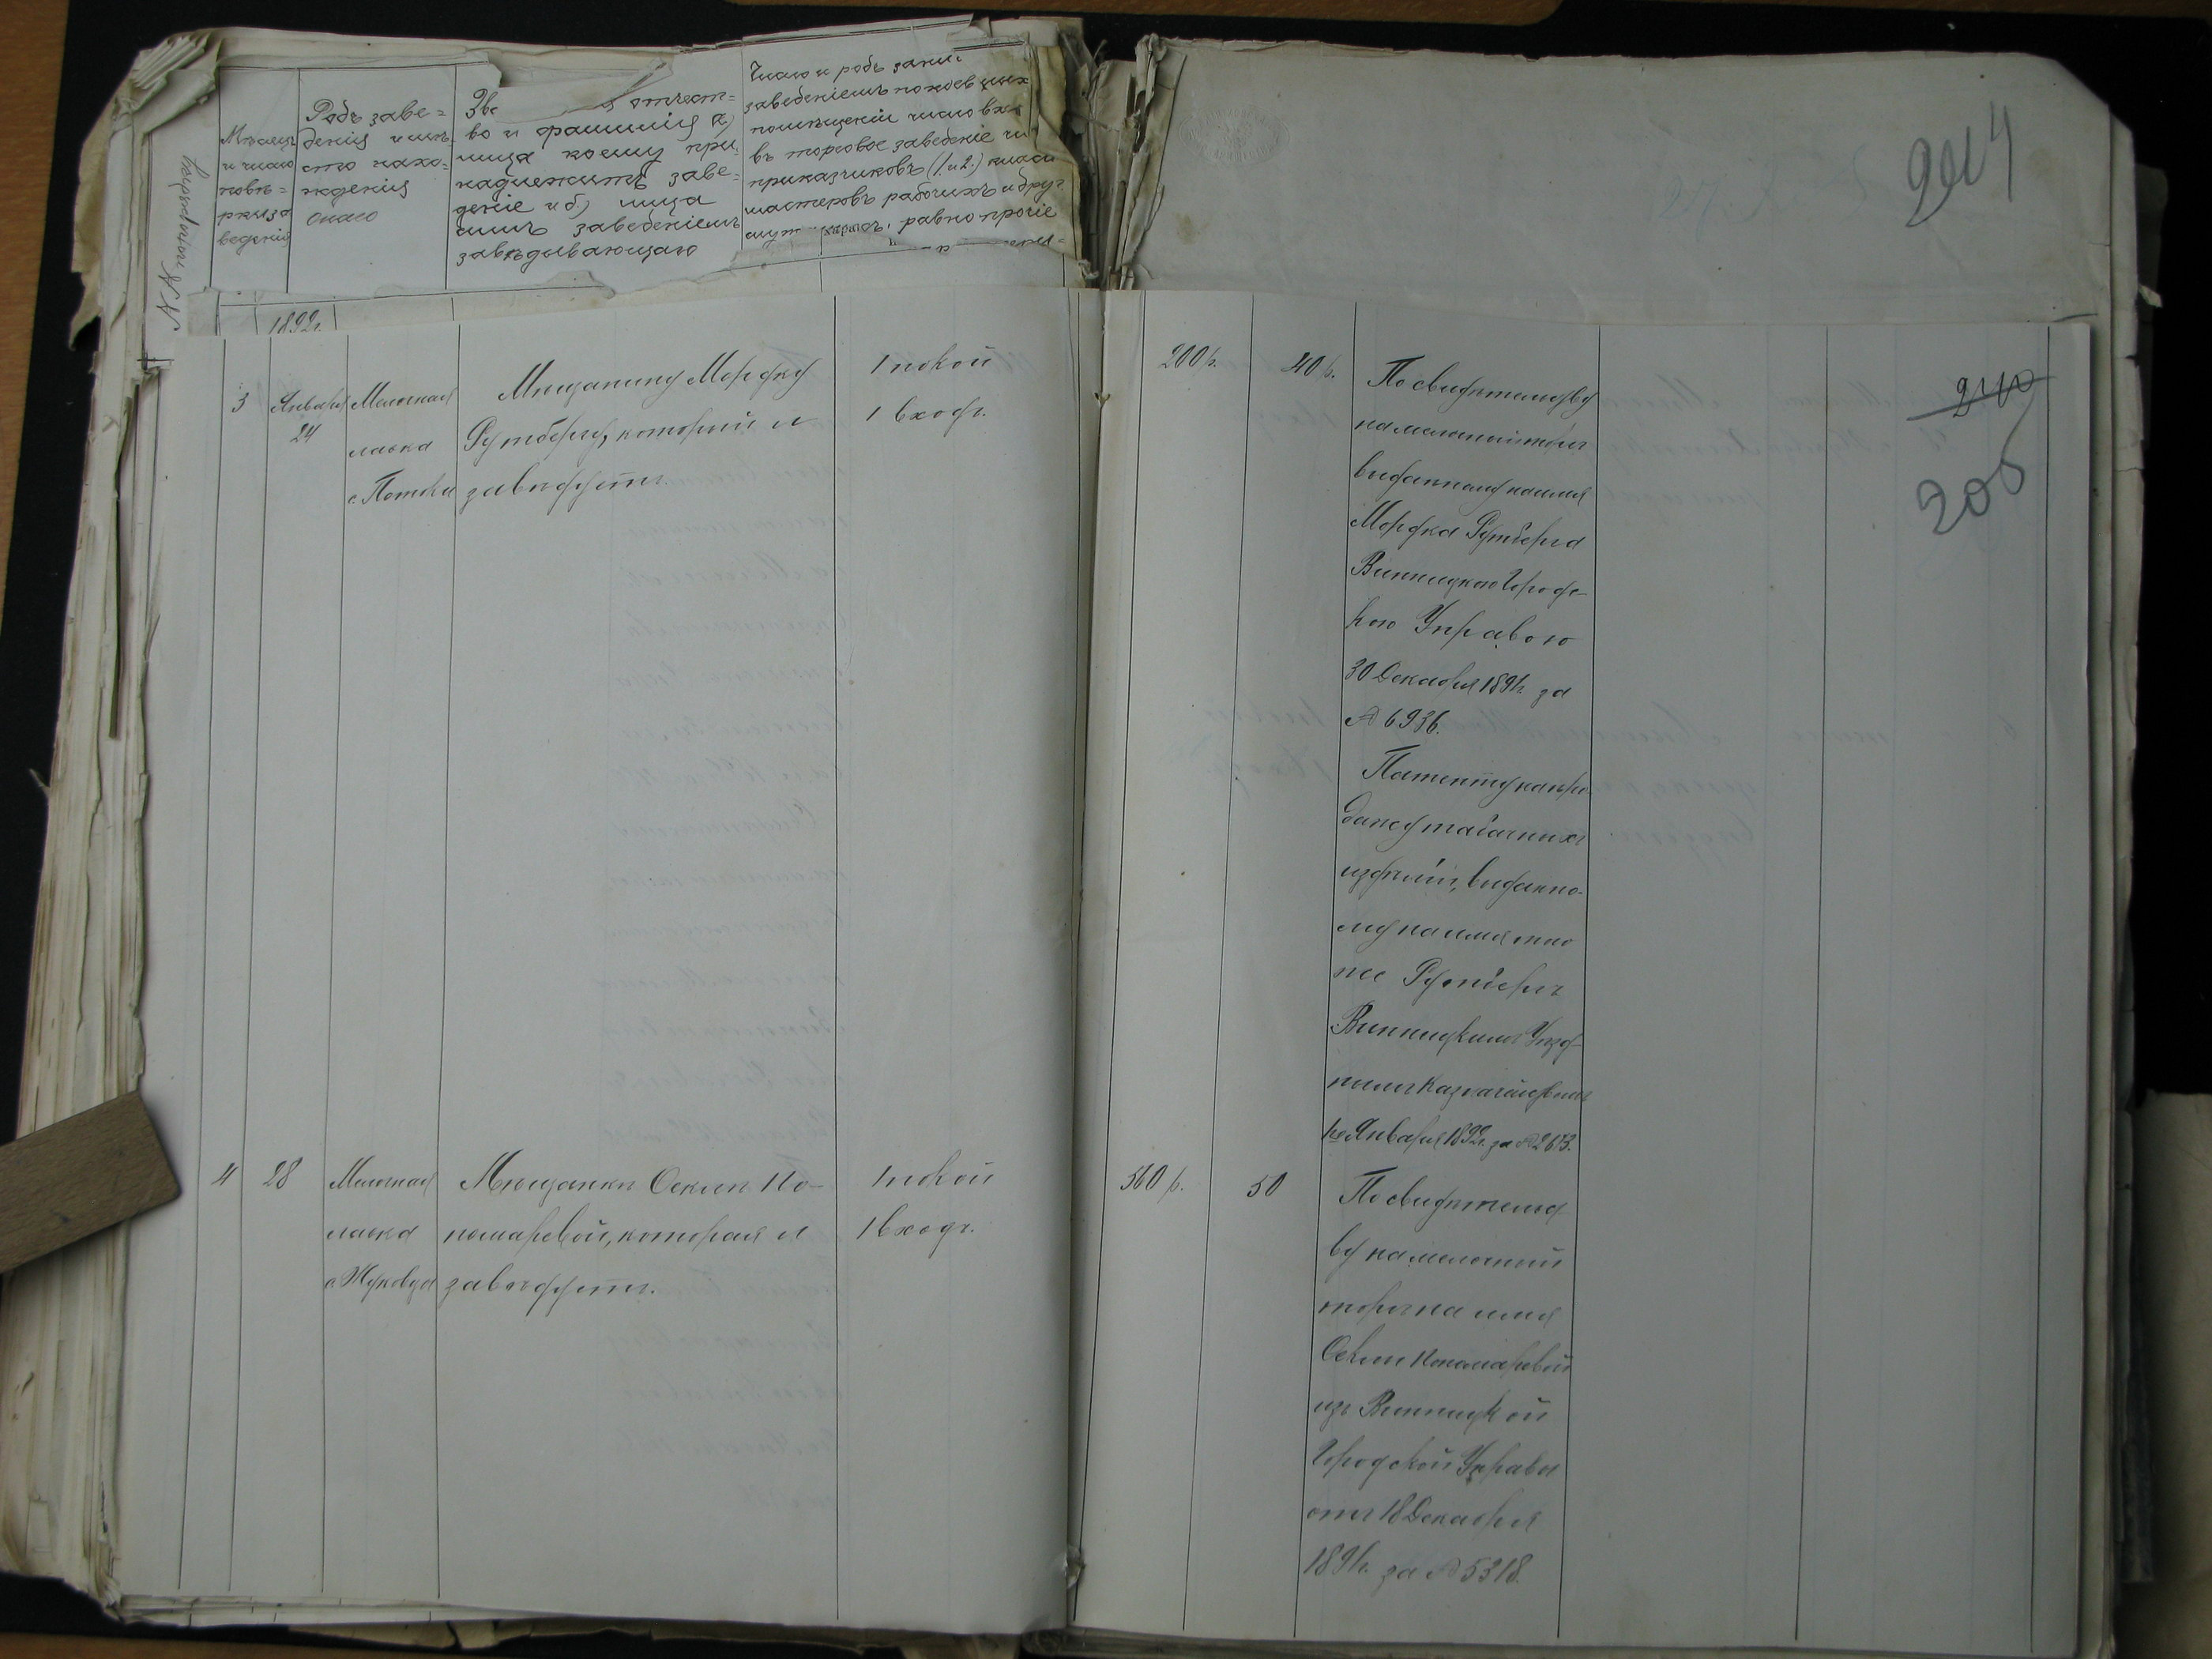 Мѣсяцъ
и число
повѣ-
рки за
веденія
Родъ заве-
денія и мѣ-
сто нахо-
жденія
онаго
отчест-
во и фамилія а)
лица коему при-
надлежитъ заве-
деніе и б) лица
симъ заведеніемъ
завѣдывающаго
Число и родъ
заведеніемъ покоев
помѣщеній число вх
въ торговое заведеніе
приказчиковъ (1 и 2)
мастеровъ рабочихъ и друг
равно прочіе
1892г.
904
3
Января
24
Мелочная
лавка
с. Потоки
Мѣщанину Мордку
Рутбергу, который и
завѣдуетъ.
1 покой
1 входъ.
200 р.
40 р.
По свидѣтельству
на мелочной торгъ
выданному на имя
Мордка Рутберга
Винницкою Городс-
кою Управою
30 Декабря 1891г. за
№ 6936.
Патенту на про-
дажу табачныхъ
издѣлій, выданно-
му на имя того
же Рутбергъ
Винницкимъ Уѣзд-
нымъ Казначействомъ
Января 1892г. за № 2673.
240
206
4
28
Мелочная
лавка
с. Жуковцы
Мѣщанкѣ Оеклѣ По-
номаревой, которая и
завѣдуетъ.
1 покой
1 входъ.
500 р.
50
По свидѣтельст
ву на мелочный
торгъ на имя
Оеклы Пономаревой
изъ Винницкой
Городской Управы
отъ 18 Декабря
1891г. за № 5318.